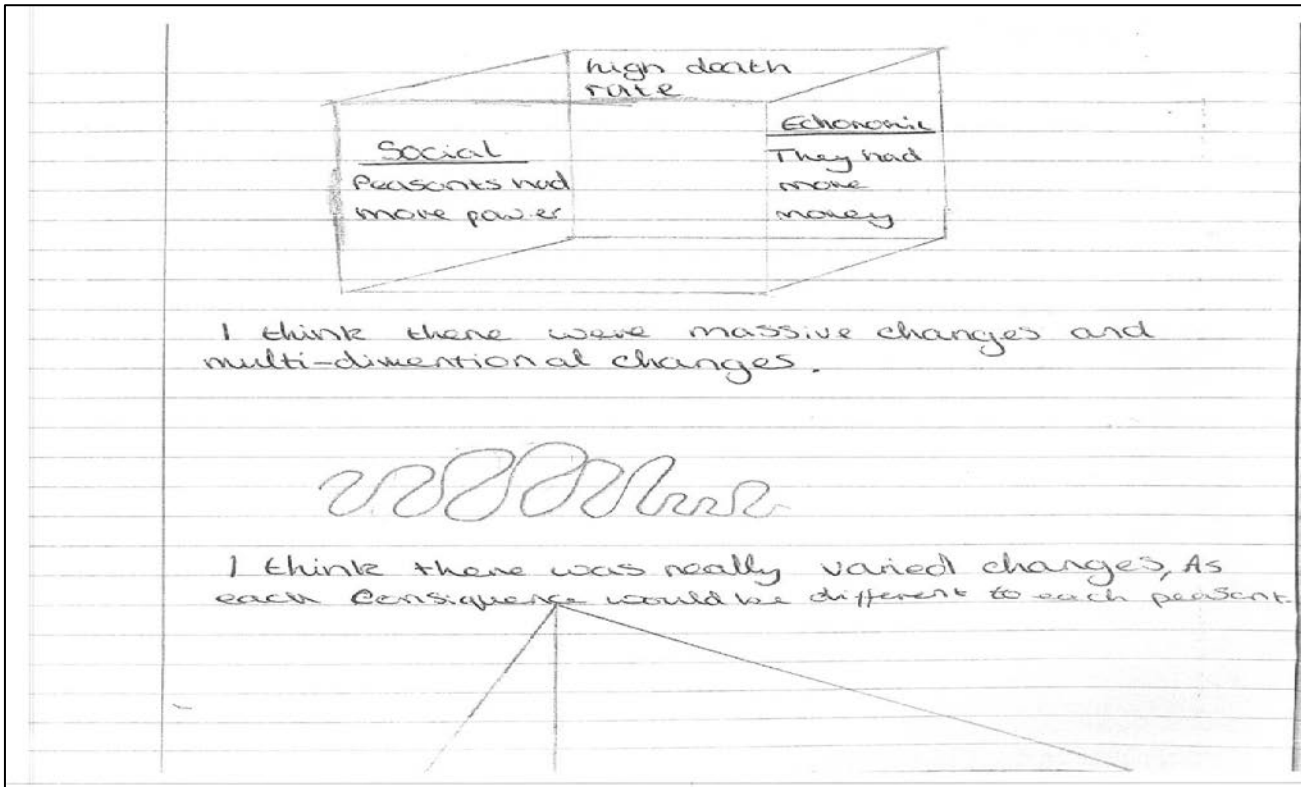 high death
rate
Social
Peasants had
more power
Echonomic
They had
more
money
I think there were massive changes and
multi-dimentional changes.
I think there was really varied changes, As
each Consiquence would be different to each peasant.